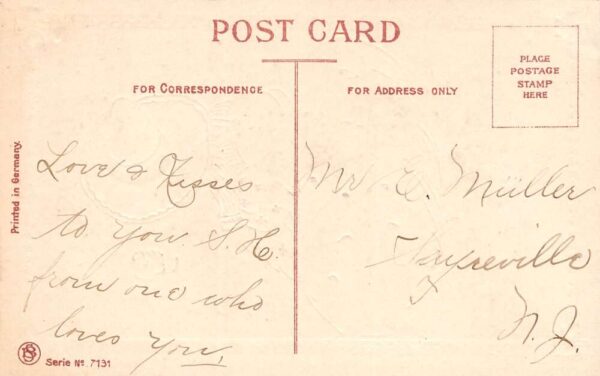 POST CARD
PLACE
POSTAGE
STAMP
HERE
FOR CORRESPONDENCE
FOR ADDRESS ONLY
Printed in Germany.
Love & Kisses
to You S. H.
from one who
loves You.
Mr E. Müller
Sayreville
N. J.
Serie No. 7131